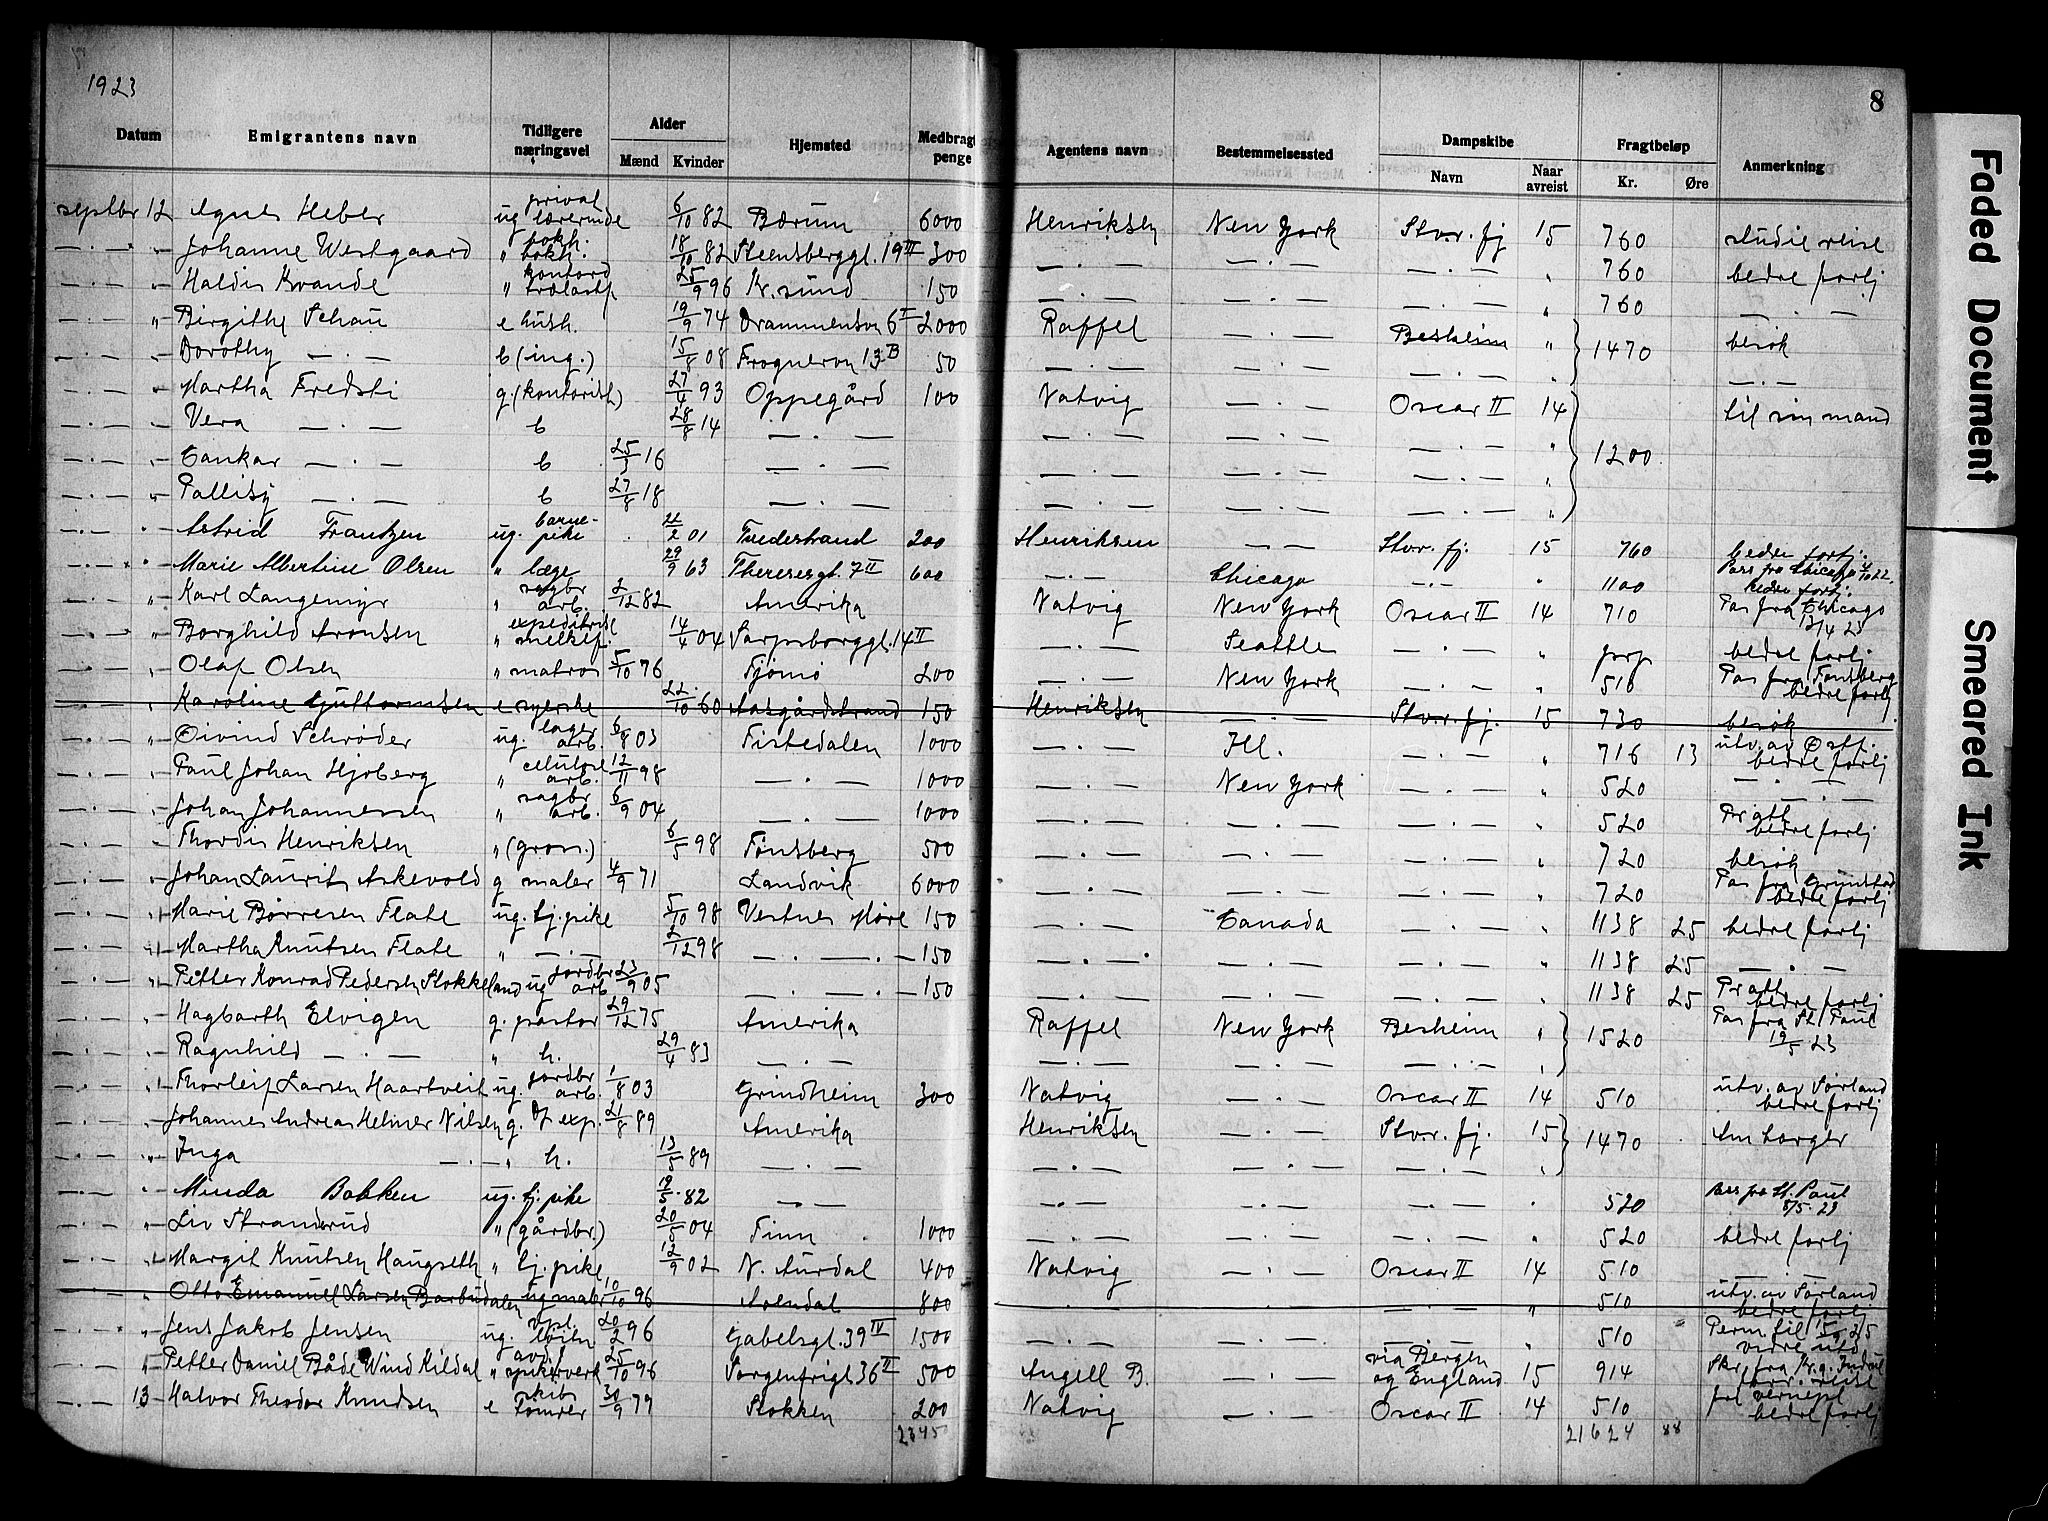 1923
8
Datum Emigrantens navn Tidligere næringsvei Alder Mænd Kvinder Hjemsted Medbragt penge Agentens navn Bestemmelsessted Dampskibe Navn Naar avreist Fragtbeløp Kr. Øre Anmerkning
septbr 12 Agnes Heber ug privat lærerinde 6/10 82 Bærum 6000 Henriksen New York Stvr. fj 15 760 studie reise
— · — " Johanne Westgaard " bokh. 18/10 82 Steensberggt. 19 II 300 — · — — · — — · — " 760 bedre fortj
— · — " Haldis Kvande " kontord 25/9 96 Kr. sund 150 — · — — · — — · — " 760 — · —
— · — " Birgithe Schau e hush. 19/9 74 Drammensvn 6 I 2000 Raffel — · — Besheim " 1470 besøk
— · — " Dorothy — · — b (ing.) 15/8 08 Frognervn 13 B 50 — · — — · — — · — " — · —
— · — " Martha Fredsti g. (kontorist) 27/4 93 Oppegård 100 Natvig — · — Oscar II 14 til sin mand
— · — " Vera — · — b 28/8 14 — · — — · — — · — — · — "
— · — " — · — b 25/3 16 — · — — · — — · — — · — " 1200
— · — " — · — b 27/8 18 — · — — · — — · — — · — "
— · — " Astrid Frantzen ug. barne-pike 01 200 Henriksen — — Stvr. fj. 15 760 bedre fortj.
— · — " Marie Albertine Olsen " læge 29/9 63 Theresesgt. 7 II 600 — · — Chicago — · — " 1100 Pass fra Chicago 4/10 22. bedre fortj.
— · — " Karl Langemyr " sagbr arb. 2/12 82 Amerika Natvig New York Oscar II 14 710 Pas fra Chicago 13/4 23
— · — " Borghild Aronsen " expeditrise melkef. 14/4 04 Sarpsborggt. 14 II — · — Seattle — · — " prp bedre fortj
— · — " Olaf Olsen " matros 5/10 76 Tjømø 200 — · — New York — · — " 510 Pas fra Tønsberg bedre fortj
— · — " Karoline Guttormsen e syerske 22/10 60 Aasgårdstrand 150 Henriksen — · — Stvr. fj. 15 730 besøk
— · — " Øivind Schrøder ug. lager arb. 6/8 03 Tistedalen 1000 — · — Ill. — · — " 716 13 utv. av Østf. bedre fortj
— · — " Paul Johan Hjoberg " celulose arb. 12/11 98 — · — 1000 — · — New York — · — " 520 — · —
— · — " Johan Johannessen " sagbr arb. 6/9 04 — · — 1000 — · — — · — — · — " 520 Pr att bedre fortj
— · — " Thordis Henriksen " (gros.) 6/5 98 Tønsberg 500 — · — — · — — · — " 720 besøk
— · — " Johan Laurits Askevold g maler 4/9 71 Landvik 6000 — · — — · — — · — " 720 Pas fra Grimstad bedre fortj
— · — " Marie Børresen Flate ug. tj. pike 5/10 98 Vestnes Møre 150 — · — Canada — · — " 1138 25 bedre fortj
— · — " Martha Knutsen Flate " — · — 2/12 98 — · — 150 — · — — · — — · — " 1138 25 — · —
— · — " Petter Konrad Pedersen Stokkeland ug jordbr arb 23/9 05 — · — 150 — · — — · — — · — " 1138 25 Pr att bedre fortj
— · — " Hagbarth Elvigen g. pastor 29/12 75 Amerika Raffel New York Besheim " 1520 Pas fra St. Paul 19/5 23
— · — " Ragnhild — · — " h. 29/4 83 — · — — · — — · — — · — "
— · — " Thorleif Larsen Haartveit ug. jordbr arb. 1/8 03 Grindheim 300 Natvig — · — Oscar II 14 510 utv. av Sørland bedre fortj
— · — " Johannes Andreas Helmer Nilsen g. exp. 21/8 89 Amerika Henriksen — · — Stvr. fj. 15 1470 Am borger
— · — " Inga — · — " h. 13/5 89 — · — — · — — · — — · — "
— · — " Minda Bakken ug. tj. pike 19/5 82 — · — — · — — · — — · — " 520 Pass fra St. Paul 8/5 23
— · — " Liv Stranderud " (gårdbr.) 20/5 04 Tinn 1000 — · — — · — — · — " 520 bedre fortj
— · — " Margit Knutsen Haugseth " tj. pike 12/9 02 N. Aurdal 400 Natvig — · — Oscar II 14 510 — · —
— · — " Otto Emanuel Larsen Barbudalen ug matr 10/10 96 Arendal 800 — · — — · — — · — " 510 utv. av Sørland bedre fortj
— · — " Jens Jakob Jensen ug. vpl. løitn 20/2 96 Gabelsgt. 39 IV 1500 — · — — · — — · — " 510 Perm til 15/9 25 vidre utd
— · — " Petter Daniel Både Wind Kildal " avd. spikerverk 25/10 96 Sorgenfrigt 36 II 500 Angell B. — · — via Bergen og England 15 914 Skr. fra Kr.a. Indrul forr. reise
— · — 13 Halvor Theodor Knudsen e skibs Tømrer 30/9 79 Stokken 200 Natvig — · — Oscar II 14 510 bedre fortj
2345 21624 88
Faded Document
Smeared Ink